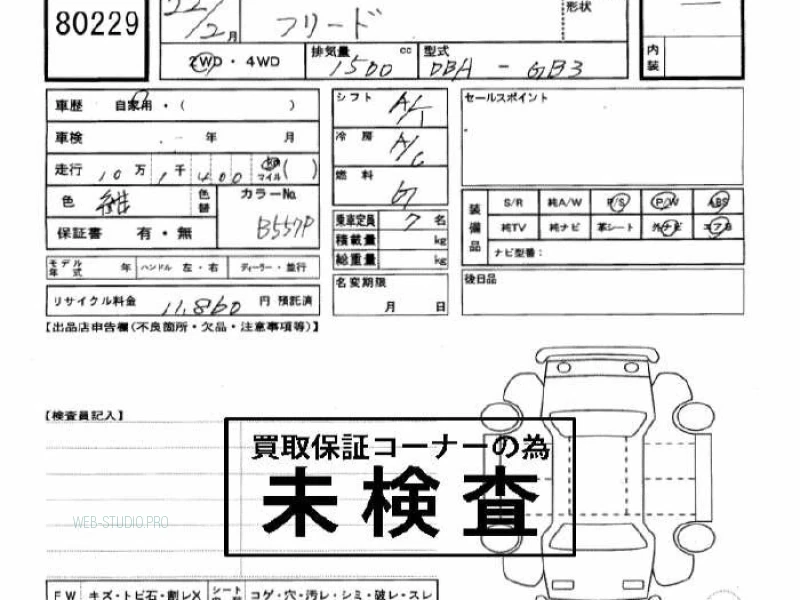 80229
22/2月
フリード
形状
2WD・4WD
排気量 cc
1500
型式
DBA - GB3
内装
車歴 自家用・( )
車検 年 月
走行 10万1千400 マイル ( )
色 紺
色替
カラーNo.
B557P
保証書 有・無
シフト A/T
冷房 A/C
燃料
乗車定員 7名
積載量 kg
総重量 kg
セールスポイント
装備品
S/R 純A/W P/S P/W ABS
純TV 純ナビ 革シート 外ナビ エアB
ナビ型番:
モデル年式 年 ハンドル 左・右 ディーラー・並行
名変期限
月 日
後日品
リサイクル料金 11,860円 預託済
【出品店申告欄(不良箇所・欠品・注意事項等)】
【検査員記入】
買取保証コーナーの為
未検査
WEB-STUDIO.PRO
FW キズ・トビ石・割レX シート コゲ・穴・汚レ・シミ・破レ・スレ